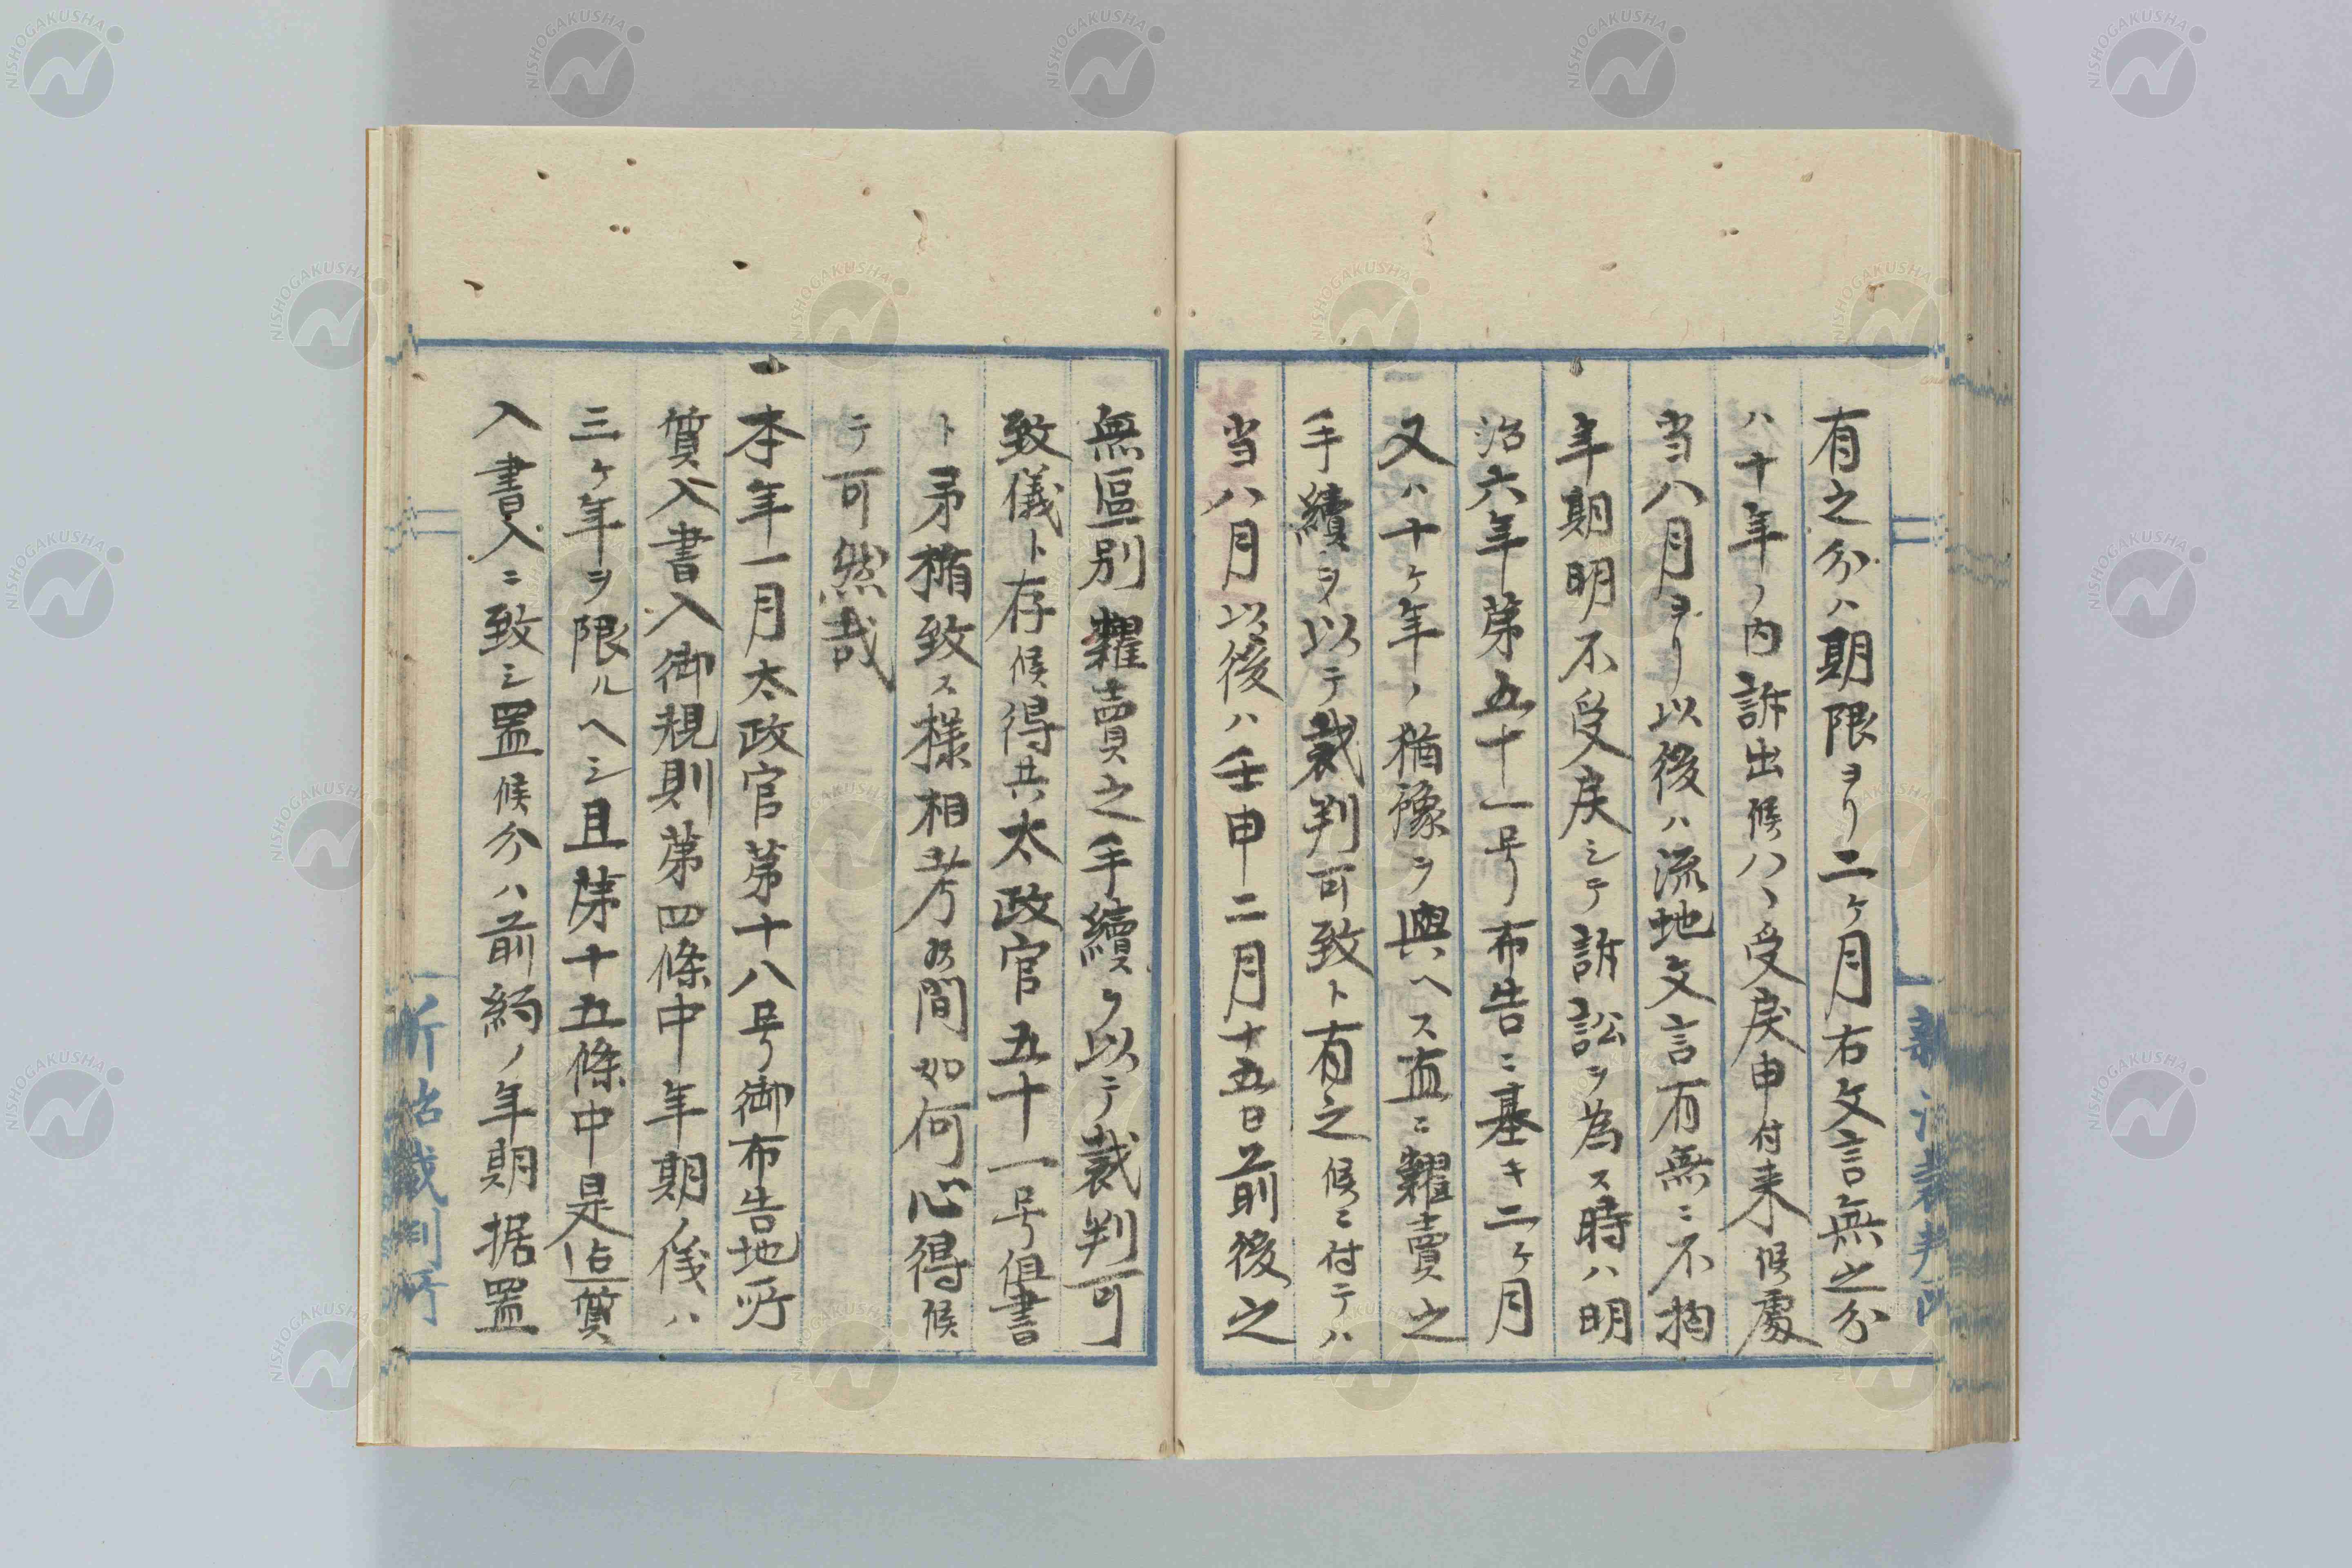 有之分ハ期限ヨリ二ケ月右文言無之分
ハ十年ノ内訴出候ハヽ受戻申付来候處
当八月ヨリ以後ハ流地文言有無ニ不拘
年期明不受戻シテ訴訟ヲ為ス時ハ明
治六年第五十一号布告ニ基キ二ケ月
又ハ十ケ年ノ猶豫ヲ與ヘス直ニ糶賣之
手續ヲ以テ裁判可致ト有之候ニ付テハ
当八月以後ハ壬申二月十五日前後之
無區別糶賣之手續ヲ以テ裁判可
致儀ト存候得共太政官五十一号但書
ト矛楯致ス様相考候間如何心得候
テ可然哉
一本年一月太政官第十八号御布告地所
質入書入御規則第四條中年期ノ儀ハ
三ケ年ヲ限ルヘシ且第十五條中是迠質
入書入ニ致シ置候分ハ前約ノ年期据置
新治裁判所
NISHOGAKUSHA